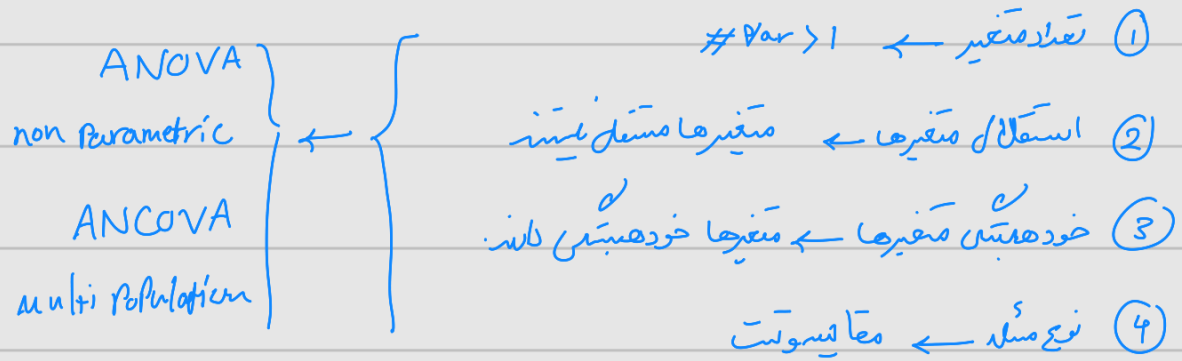 ① تعداد متغیر ← #Var > 1
② استقلال متغیرها ← متغیرها مستقل نیستند
③ خودهمبستگی متغیرها ← متغیرها خودهمبستگی دارند.
④ نوع مسئله ← مقایسه و تست
ANOVA
non parametric
ANCOVA
multi population